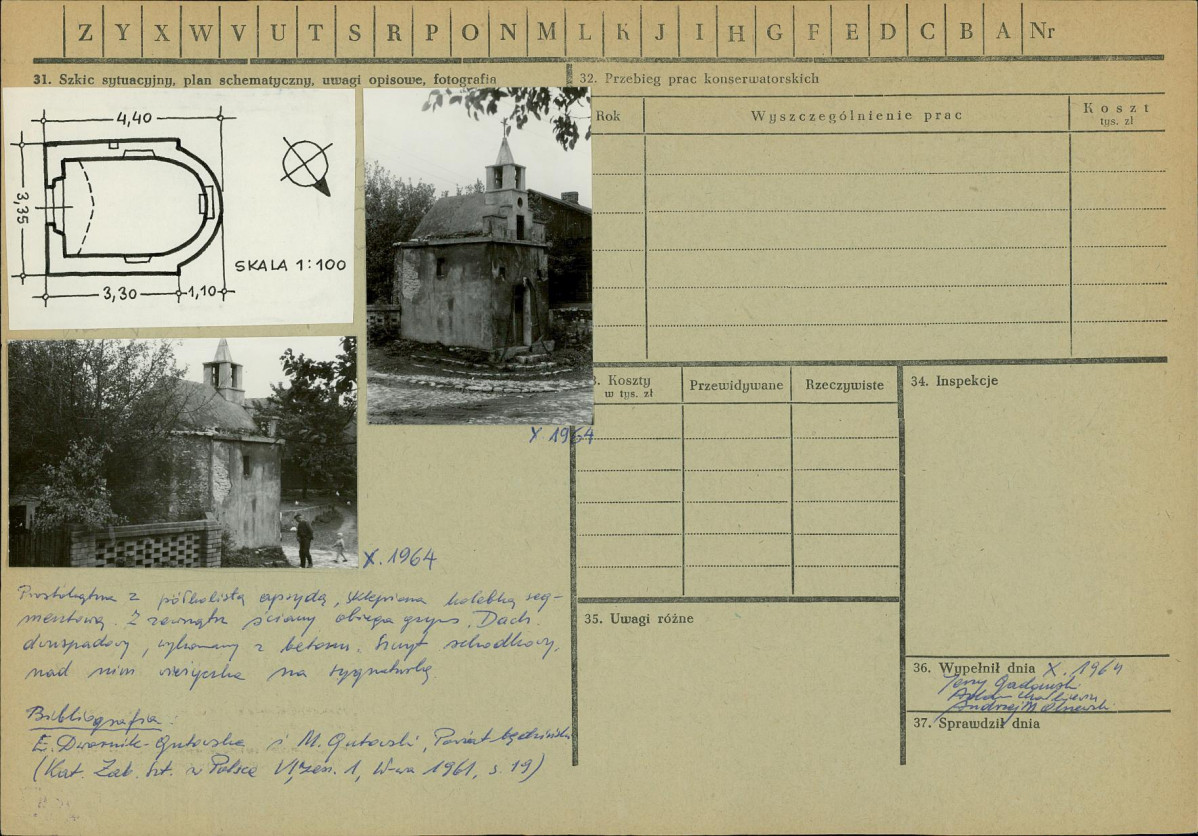 Z Y X W V U T S R P O N M L K J I H G F E D C B A Nr
31. Szkic sytuacyjny, plan schematyczny, uwagi opisowe, fotografia
4,40
3,35
3,30 1,10
SKALA 1:100
X 1964
X. 1964
Prostokątna z półkolistą apsydą, sklepiona kolebką seg-
mentową. Z zewnątrz ściany obiega gzyms. Dach
dwuspadowy, wykonany z betonu. Szczyt schodkowy,
nad nim wieżyczka na sygnaturkę.
Bibliografia:
E. Dwornik-Gutowska i M. Gutowski, Powiat będziński
(Kat. Zab. Szt. w Polsce VI, zesz. 1, W-wa 1961, s. 19)
32. Przebieg prac konserwatorskich
Rok Wyszczególnienie prac Koszt
tys. zł
3. Koszty Przewidywane Rzeczywiste
w tys. zł
34. Inspekcje
35. Uwagi różne
36. Wypełnił dnia X. 1964
Jerzy Gadomski
Adam
Andrzej M. Olszewski
37. Sprawdził dnia